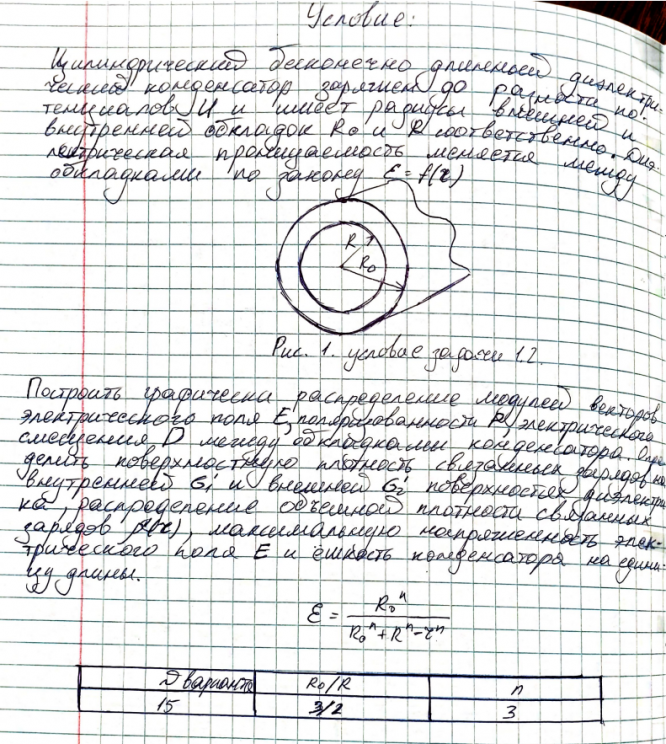 Условие:
Цилиндрический бесконечно длинный диэлектри-
ческий конденсатор заряжен до разности по-
тенциалов U и имеет радиусы внешней и
внутренней обкладок R₀ и R соответственно. Диэ-
лектрическая проницаемость меняется между
обкладками по закону ε = f(r)
R
R₀
Рис. 1. условие задачи 1.2.
Построить графически распределение модулей векторов
электрического поля E, поляризованности P, электрического
смещения D между обкладками конденсатора. Опре-
делить поверхностную плотность связанных зарядов на
внутренней σ₁' и внешней σ₂' поверхностях диэлектри-
ка, распределение объемной плотности связанных
зарядов ρ'(r), максимальную напряженность элек-
трического поля E и ёмкость конденсатора на едини-
цу длины.
ε = R₀ⁿ / (R₀ⁿ + Rⁿ - rⁿ)
варианта R₀/R n
15 3/2 3